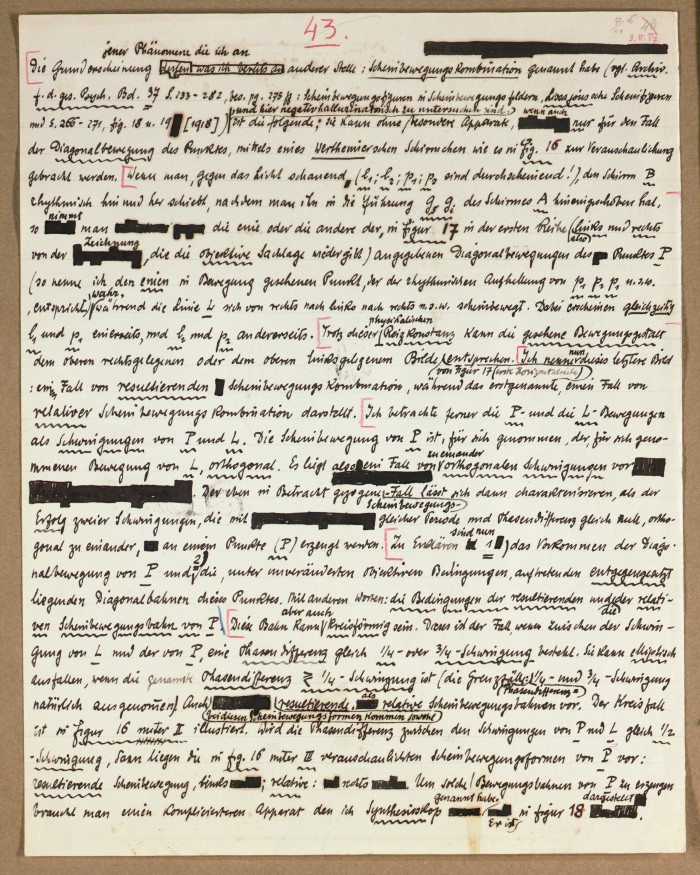 43.
3.II.17
jener Phänomene die ich an
Die Grunderscheinung anderer Stelle: Scheinbewegungskombination genannt habe (vgl. Archiv.
f. d. ges. Psych. Bd. 37 S. 233-282, bes. pg. 275 ff: Scheinbewegungsfiguren in Scheinbewegungsfeldern, Lissajous'sche Scheinfiguren
und S. 266-271, fig. 18 u. 19 [1918]) ist die folgende; sie kann ohne besondere Apparate, wenn auch nur für den Fall
der Diagonalbewegung des Punktes, mittels eines Wertheimerschen Schirmchen wie es in fig. 16 zur Veranschaulichung
gebracht werden. [Wenn man, gegen das Licht schauend, (l1; l2; p1; p2 sind durchscheinend!), den Schirm B
rhythmisch hin und her schiebt, nachdem man ihn in die Führung g, g, des Schirmes A hineingeschoben hat,
so nimmt man die eine oder die andere der, in figur 17 in der ersten Reihe (links und rechts
von der Zeichnung, die die objektive Sachlage wiedergibt) angegebenen Diagonalbewegungen des Punktes P
(so nenne ich den einen in Bewegung gesehenen Punkt, der der rhythmischen Aufhellung von p1 p2 p1 u.s.w.
entspricht) wahr, während die Linie L sich von rechts nach links nach rechts u.s.w. scheinbewegt. Dabei erscheinen gleichzeitig
l1 und p1 einerseits, und l2 und p2 andererseits. [Trotz dieser physikalischen Reizkonstanz kann die gesehene Bewegungsgestalt
dem oberen rechtsgelegenen oder dem oberen linksgelegenem Bilde entsprechen. [Ich nenne nun dieses letztere Bild
(von figur 17 (erste Horizontalreihe)
: einen Fall von resultierenden Scheinbewegungs Kombination, während das erstgenannte, einen Fall von
relativer Scheinbewegungs Kombination darstellt. [Ich betrachte ferner die P- und die L-Bewegungen
als Schwingungen von P und L. Die Scheinbewegung von P ist, für sich genommen, der, für sich geno-
mmenen Bewegung von L, orthogonal. Es liegt also ein Fall von zu einander orthogonalen Schwingungen vor
. Der eben in Betracht gezogene Fall lässt sich dann charakterisieren, als der
Erfolg zweier Scheinbewegungs-Schwingungen, die mit gleicher Periode und Phasendifferenz gleich null, ortho-
gonal zu einander, an einem Punkte (P) erzeugt werden. [Zu Erklären sind nun 1) das Vorkommen der Diago-
nalbewegung von P und 2) die, unter unveränderten objektiven Bedingungen, auftretenden entgegengesetzt
liegenden Diagonalbahnen dieses Punktes. Mit anderen Worten: die Bedingungen der resultierenden und die der relati-
ven Scheinbewegungsbahn von P. [Diese Bahn kann aber auch kreisförmig sein. Dieses ist der Fall, wenn zwischen der Schwin-
gung von L und der von P, eine Phasendifferenz gleich 1/4- oder 3/4-Schwingung besteht. Sie kann elliptisch
ausfallen, wenn die genannte Phasendifferenz ≷ 1/4-Schwingung ist (die Grenzfälle: 1/4- und 3/4-Schwingung
Phasendifferenz
natürlich ausgenommen) Auch bei diesen Scheinbewegungsformen kommen sowohl resultierende, als relative Scheinbewegungsbahnen vor. Der Kreisfall
ist in figur 16 unter II illustriert. Wird die Phasendifferenz zwischen den Schwingungen von P und L gleich 1/2
-Schwingung, dann liegen die in fig. 16 unter III veranschaulichten Scheinbewegungsformen von P vor:
resultierende Scheinbewegung, links; relative: rechts. Um solche Bewegungsbahnen von P zu erzeugen
braucht man einen komplicierteren Apparat den ich Synthesiskop genannt habe. Er ist in figur 18 dargestellt.